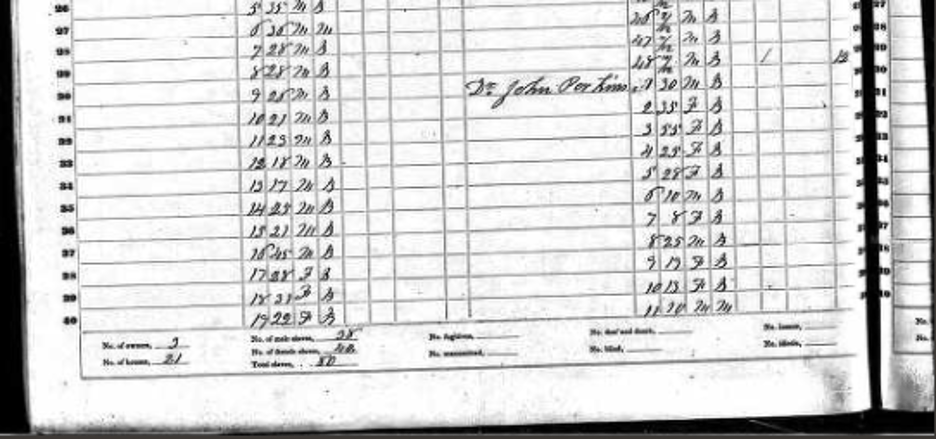 5 35 m B
27 6 30 m m
28 7 28 m B
29 8 28 m B
30 9 25 m B
31 10 21 m B
32 11 23 m B
33 12 18 m B
34 13 17 m B
35 14 23 m B
36 15 21 m B
37 16 45 m B
38 17 28 F B
39 18 31 F B
40 19 22 F B
m B
47 m B
48 m B 1
Dr John Perkins 1 30 m B
2 35 F B
3 55 F B
4 25 F B
5 28 F B
6 10 m B
7 8 F B
8 25 m B
9 19 F B
10 13 F B
11 70 m m
No. of owners, 3
No. of houses, 21
No. of male slaves, 38
No. of female slaves, 42
Total slaves, 80
No. fugitives,
No. manumitted,
No. deaf and dumb,
No. blind,
No. insane,
No. idiotic,